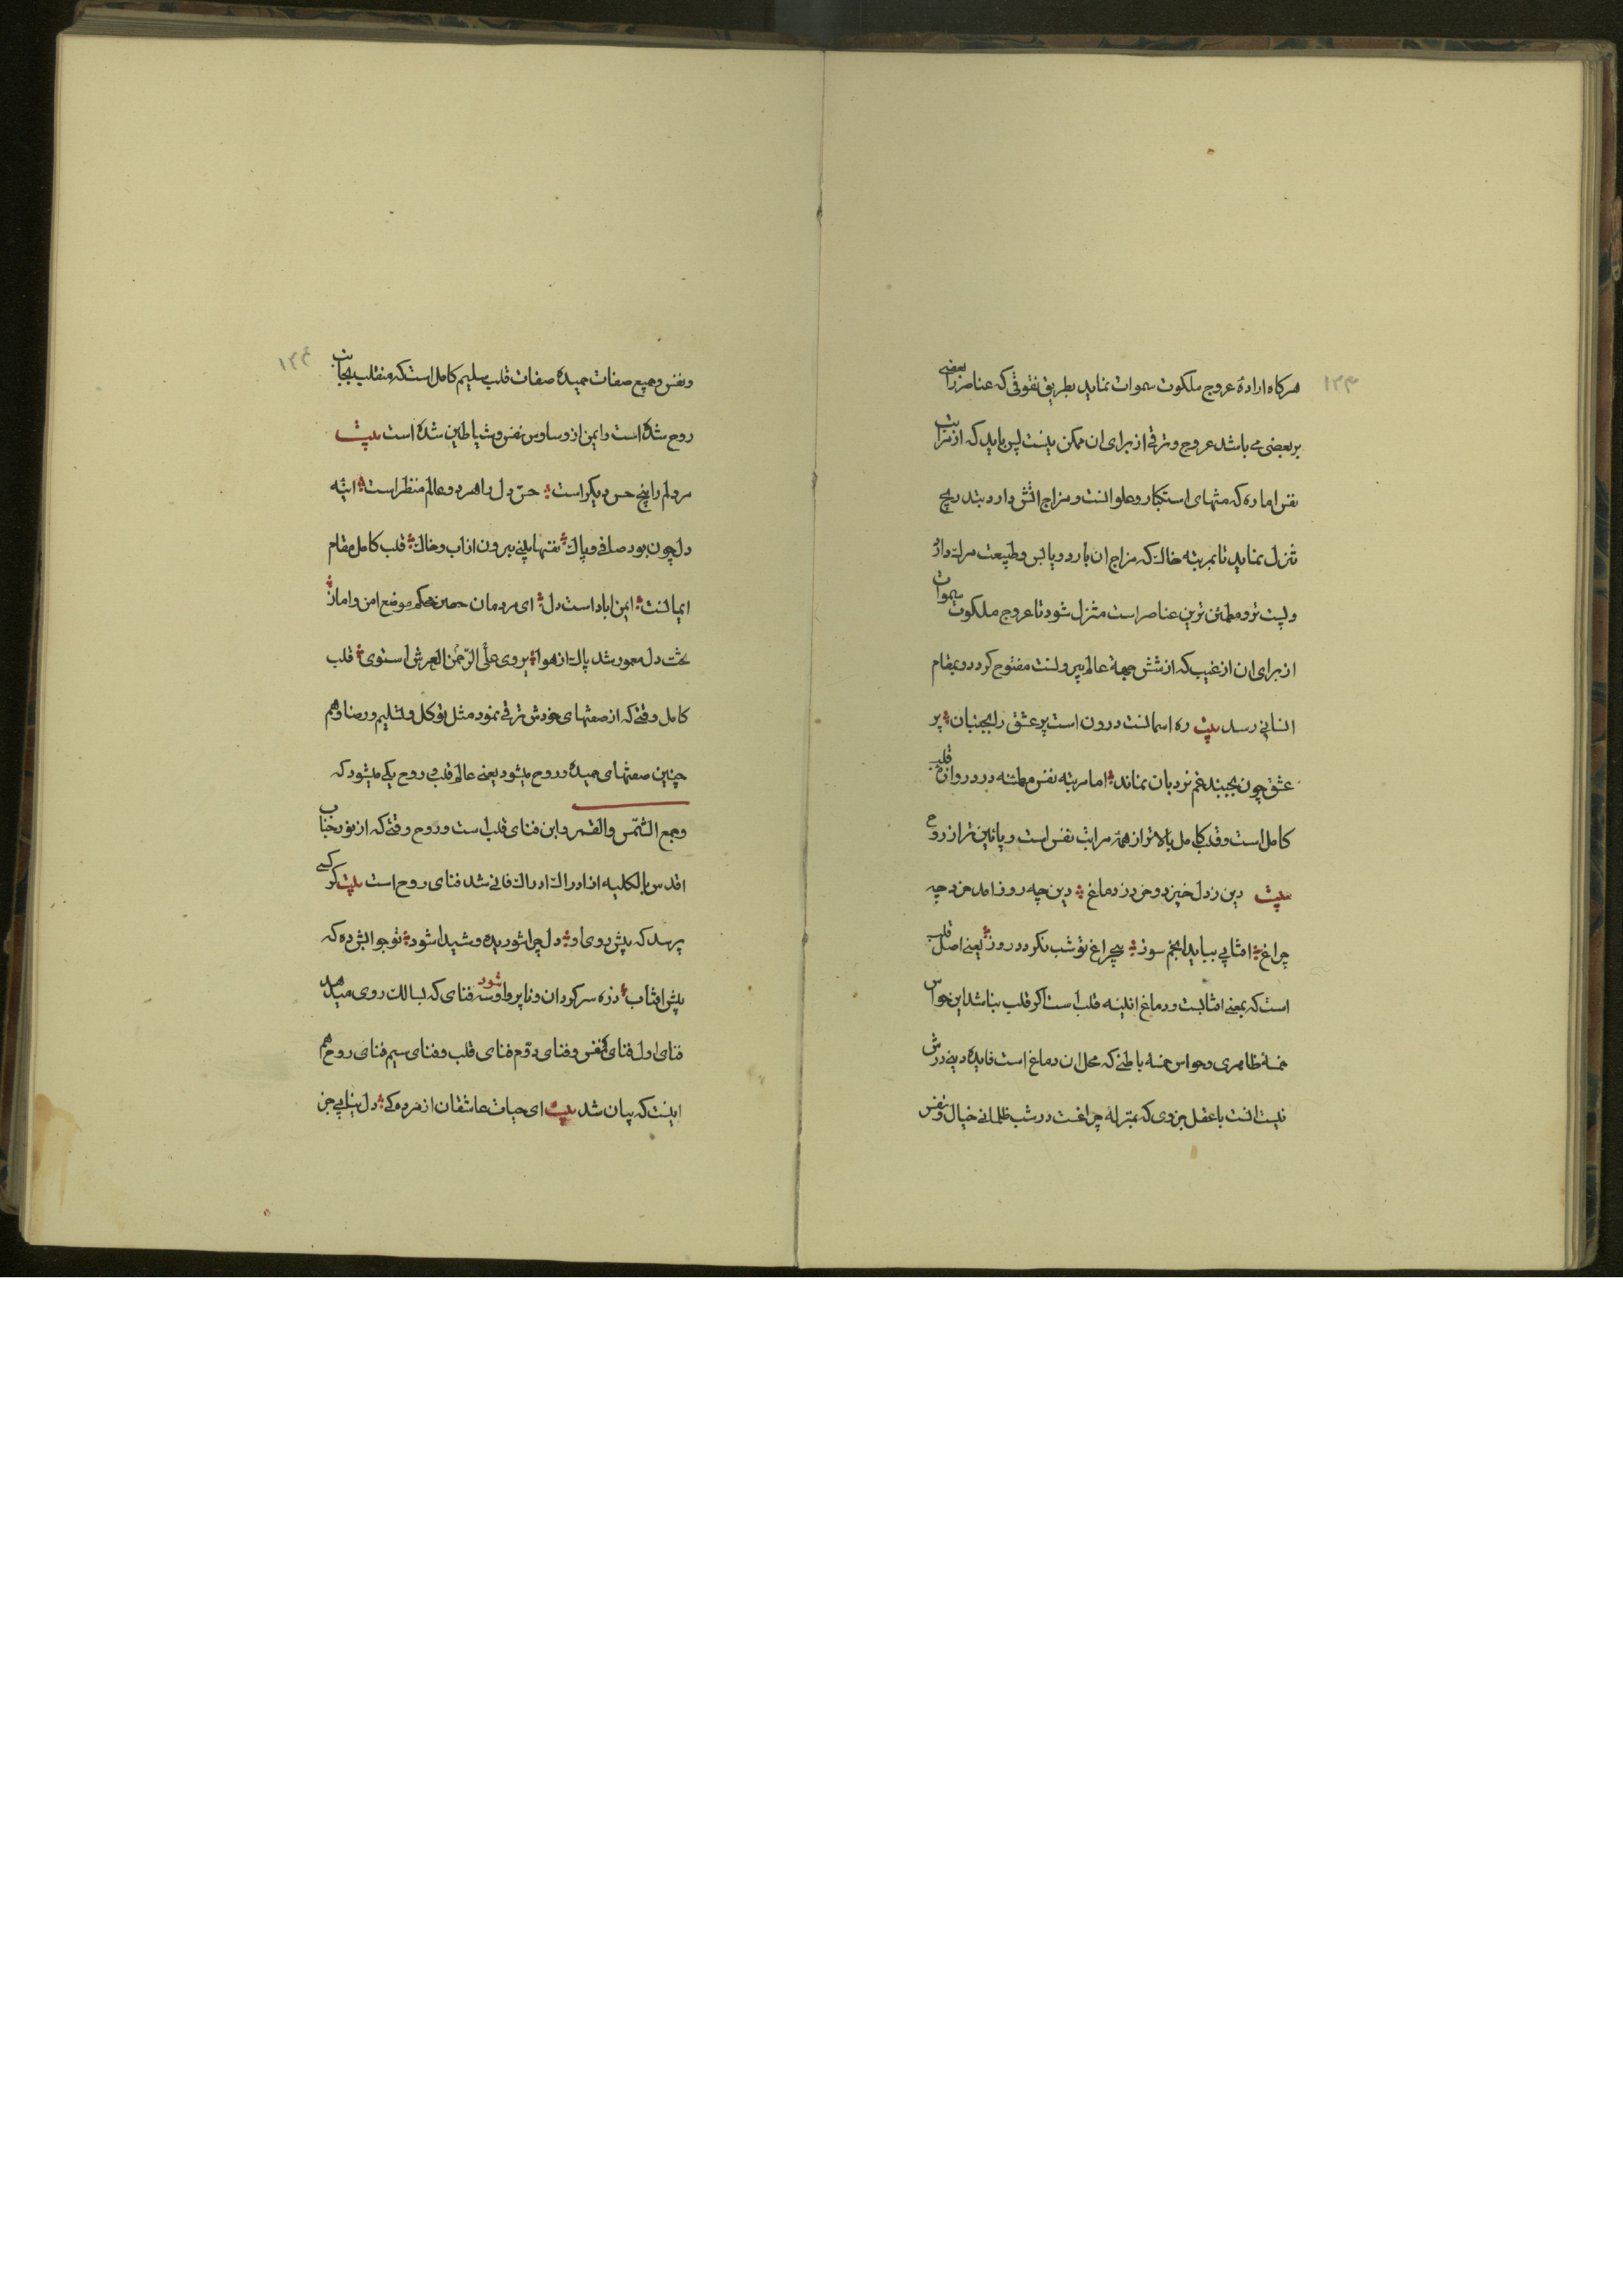 ۱۲۳
هرکاه اراده عروج ملکوت سموات نماید بطریق تفوقی که عناصر را بعضی
بر بعضی می باشد عروج و ترقی از برای ان ممکن نیست پس باید که از مراتب
نفس اماره که منتهای استکبار و علو انست و مزاج اتش دارد بتدریج
تنزل نماید تا بمرتبه خاک که مزاج ان بارد و یابس و طبیعت مرک دارد
و پست تر و مطمئن ترین عناصر است متنزل شود تا عروج ملکوت سموات
از برای ان از غیب که از شش جهة عالم بیرونست مفتوح کردد و بمقام
انسانی رسد بیت ره اسمانست درون است پر عشق را بجنبان پر
عشق چون بجنبد غم نردبان نماند اما مرتبه نفس مطمئنه در دروازه قلب
کامل است و قلب کامل بالاتر از همه مراتب نفس است و پائین تر از روح
بیت دین ز دل خیزد و خرد ز دماغ دین چه روز امد خرد چه
چراغ افتابی بباید انجم سوز بچراغ تو شب نکردد روز یعنی اصل قلب
است که بمعنی افتابست و دماغ اینه قلب است اکر قلب نباشد این حواس
خمسه ظاهری و حواس خمسه باطنی که محل ان دماغ است فایده دینی درش
نیست انست با عقل جزوی که بمنزله چراغست در شب ظلمانی خیال و نفس
۱۲۴
و نفس و جمیع صفات حمیده صفات قلب سلیم کامل است که منقلب بجانب
روح شده است و ایمن از وساوس نفس و شیاطین شده است بیت
مر دلم را پنج حس دیکر است حس دل را هر دو عالم منظر است اینه
دل چون بود صافی و پاک نقشها بینی بیرون از اب و خاک قلب کامل مقام
ایمانست ایمن اباد است دل ای مردمان حصن محکم موضع امن و امان
تخت دل معمور شد پاک از هوا بر وی علی الرحمن العرش استوی قلب
کامل وقتی که از صفتهای خودش ترقی نمود مثل توکل و تسلیم و رضا و هم
چنین صفتهای حمیده در روح میشود یعنی عالم قلب و روح یکی میشود که
و جمع الشمس و القمر و این فنای قلب است و روح وقتی که از نور جناب
اقدس بالکلیه از ادراک ادراک فانی شد فنای روح است بیت کر کسی
پرسد که پیش روی او دل چرا شوریده و شیدا شود تو جوابش ده که
پیش افتاب ذره سرکردان و ناپروا شود و سه فنای که بسالک روی میدهد
فنای اول فنای نفس و فنای دوم فنای قلب و فنای سیم فنای روح هم
اینست که بیان شد بیت ای حیات عاشقان از مردمکی دل نیابی جز